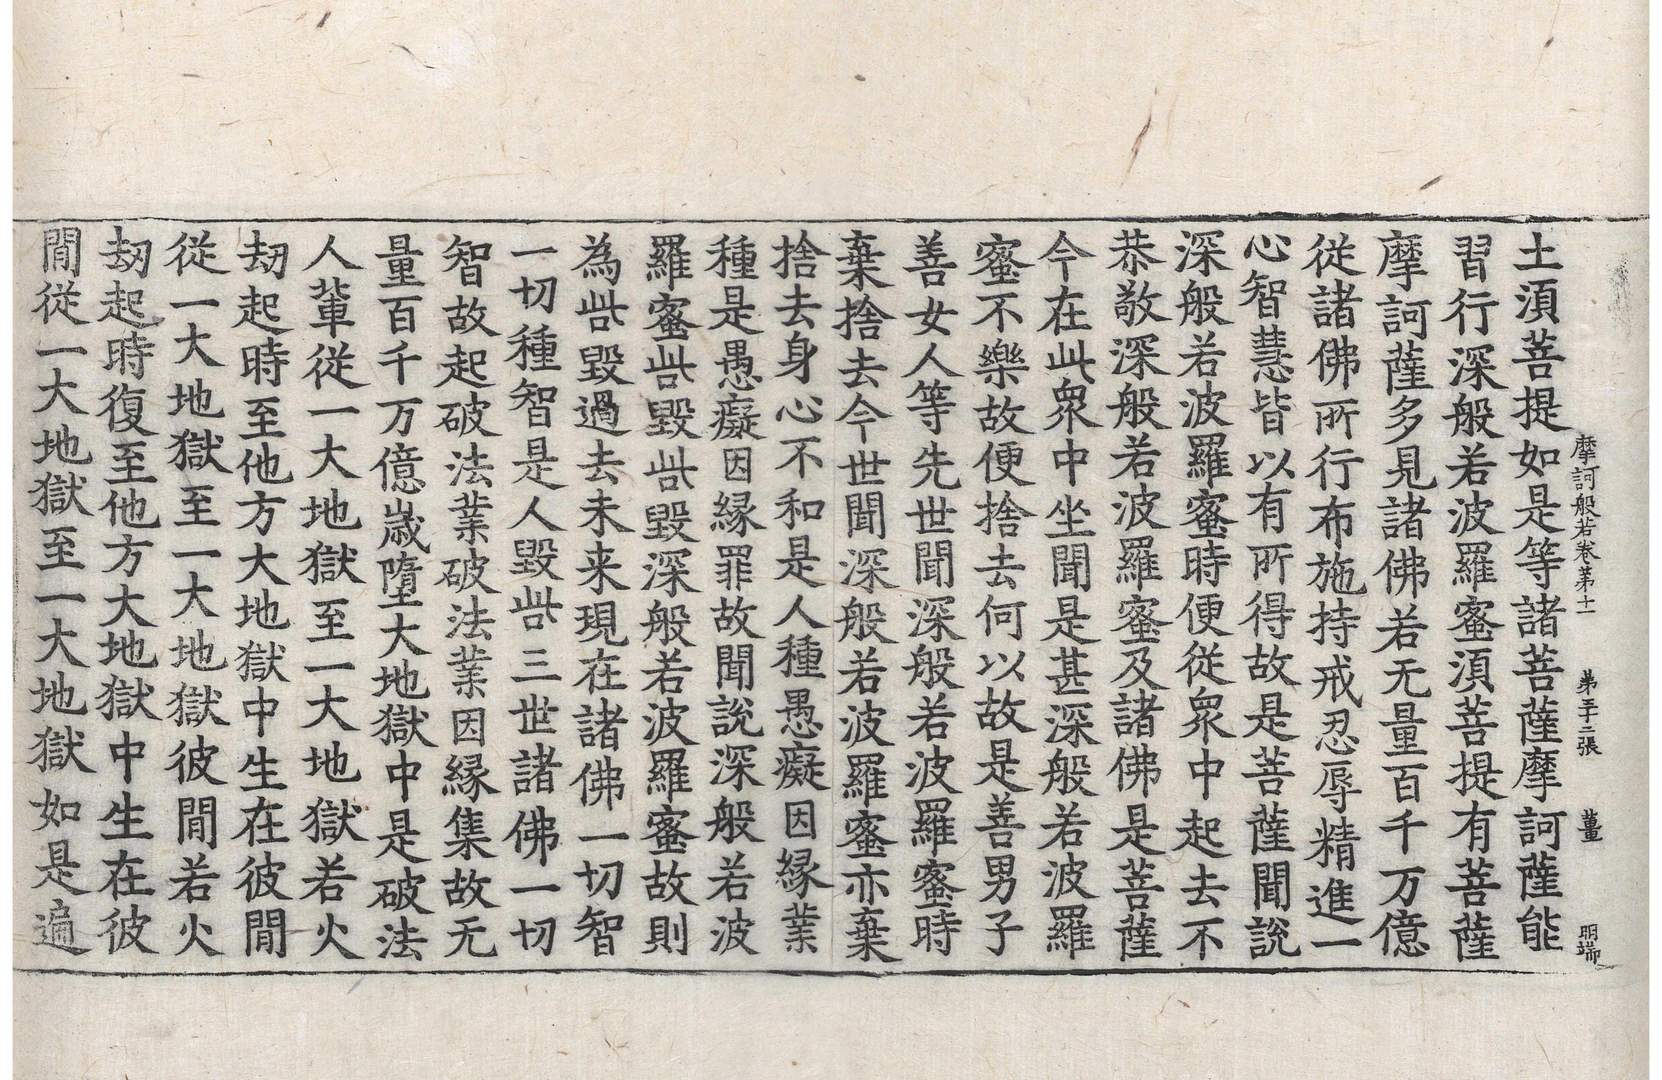 摩訶般若卷第十一　第三十二張　薑　明端
土湏菩提如是等諸菩薩摩訶薩能
習行深般若波羅蜜湏菩提有菩薩
摩訶薩多見諸佛若无量百千万億
從諸佛所行布施持戒忍辱精進一
心智慧皆以有所得故是菩薩聞說
深般若波羅蜜時便從衆中起去不
恭敬深般若波羅蜜及諸佛是菩薩
今在此衆中坐聞是甚深般若波羅
蜜不樂故便捨去何以故是善男子
善女人等先世聞深般若波羅蜜時
棄捨去今世聞深般若波羅蜜亦棄
捨去身心不和是人種愚癡因緣業
種是愚癡因緣罪故聞說深般若波
羅蜜呰毀呰毀深般若波羅蜜故則
為呰毀過去未来現在諸佛一切智
一切種智是人毀呰三世諸佛一切
智故起破法業破法業因緣集故无
量百千万億歲墮大地獄中是破法
人輩從一大地獄至一大地獄若火
劫起時至他方大地獄中生在彼間
從一大地獄至一大地獄彼間若火
劫起時復至他方大地獄中生在彼
間從一大地獄至一大地獄如是遍